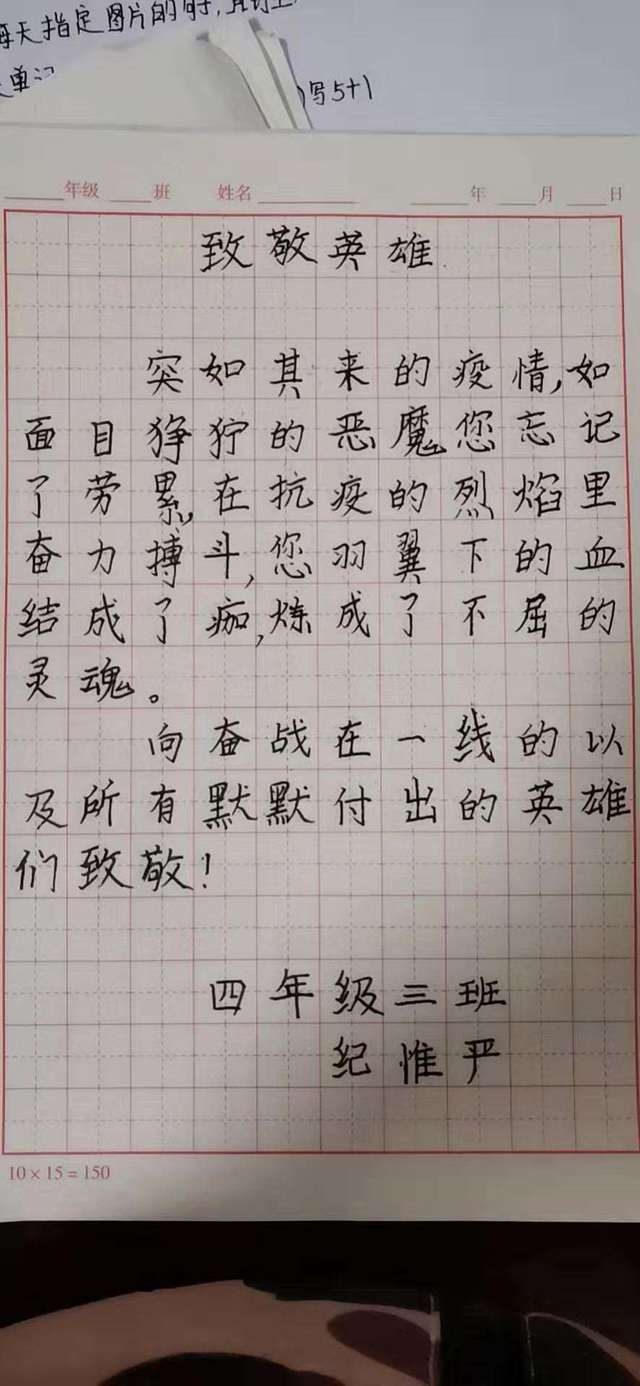 每天指定图片的
写5+1
年级 班 姓名 年 月 日
致敬英雄
突如其来的疫情,如
面目狰狞的恶魔。您忘记
了劳累,在抗疫的烈焰里
奋力搏斗,您羽翼下的血
结成了痂,炼成了不屈的
灵魂。
向奋战在一线的以
及所有默默付出的英雄
们致敬!
四年级三班
纪惟严
10×15=150